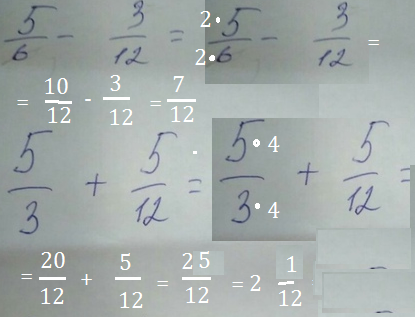 5/6 - 3/12 = 2•5/2•6 - 3/12 =
= 10/12 - 3/12 = 7/12
5/3 + 5/12 = 5•4/3•4 + 5/12 =
= 20/12 + 5/12 = 25/12 = 2 1/12